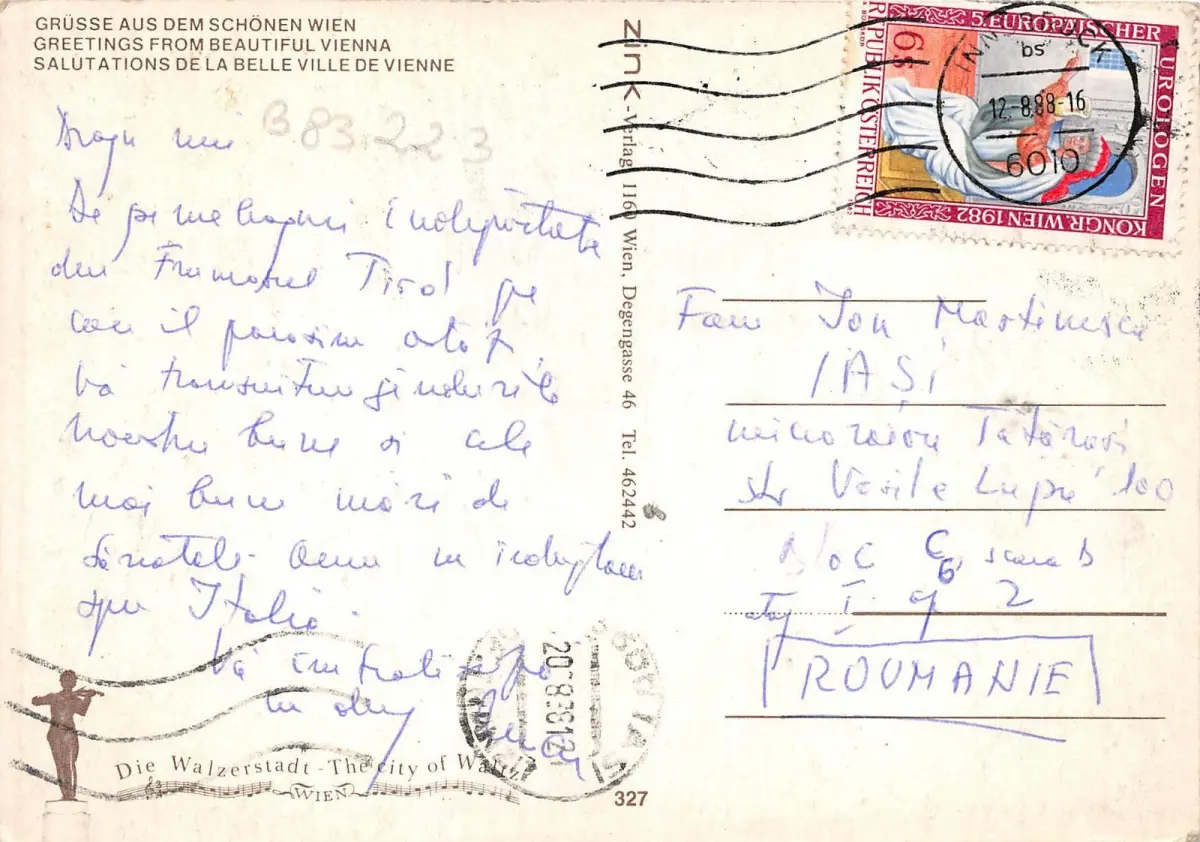 GRÜSSE AUS DEM SCHÖNEN WIEN
GREETINGS FROM BEAUTIFUL VIENNA
SALUTATIONS DE LA BELLE VILLE DE VIENNE
B 83.223
Dragii mei
De pe meleagurile îndepărtate
din Frumosul Tirol pe
care îl
vă transmitem gîndurile
noastre bune și cele
mai bune urări de
sănătate. Acum ne îndreptăm
spre Italia.
Vă îmbrățișează
cu drag
Die Walzerstadt - The city of Waltz
WIEN
zink-verlag 1160 Wien, Degengasse 46 Tel. 462442
327
5. EUROPÄISCHER UROLOGEN
KONGR. WIEN 1982
REPUBLIK ÖSTERREICH
6S
INNSBRUCK
bs
12.-8.88-16
6010
Fam Ion Martinescu
IAȘI
microraion Tătărași
str Vasile Lupu 100
Bloc C6, scara B
etaj I ap 2
ROUMANIE
IAȘI